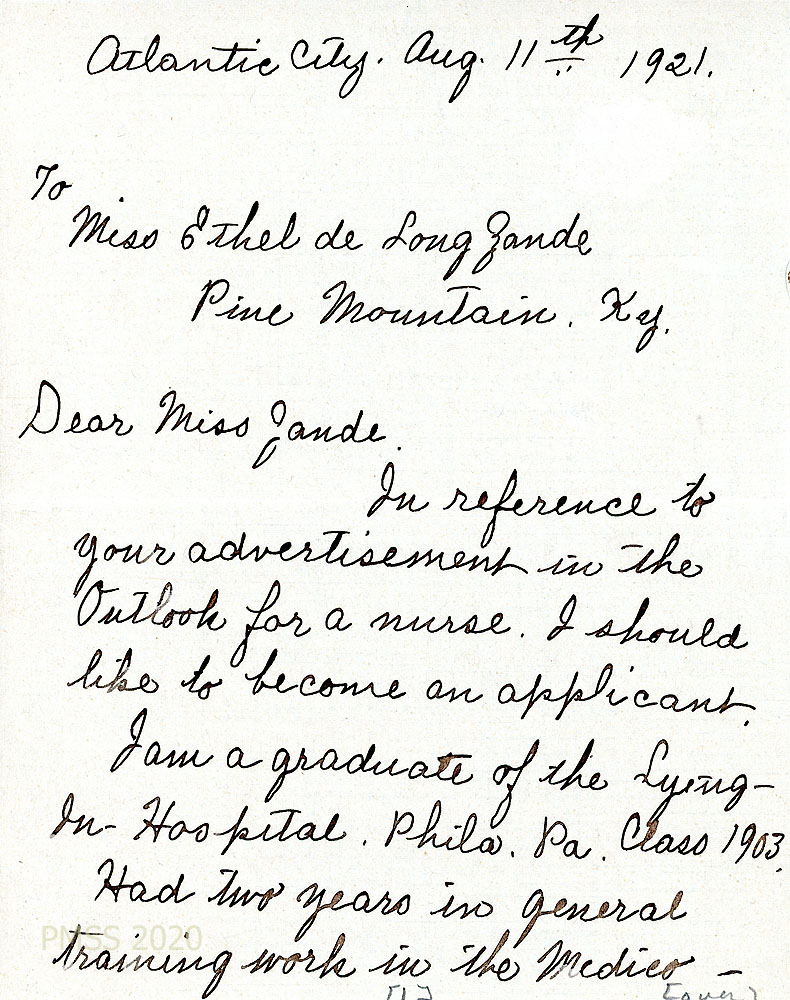 Atlantic City. Aug. 11th 1921.
To
Miss Ethel de Long Zande
Pine Mountain. Ky.
Dear Miss Zande.
In reference to
your advertisement in the
Outlook for a nurse. I should
like to become an applicant.
I am a graduate of the Lyeing-
In-Hospital. Phila. Pa. Class 1903.
Had two years in general
PMSS 2020
training work in the Medico -
[1] [over]